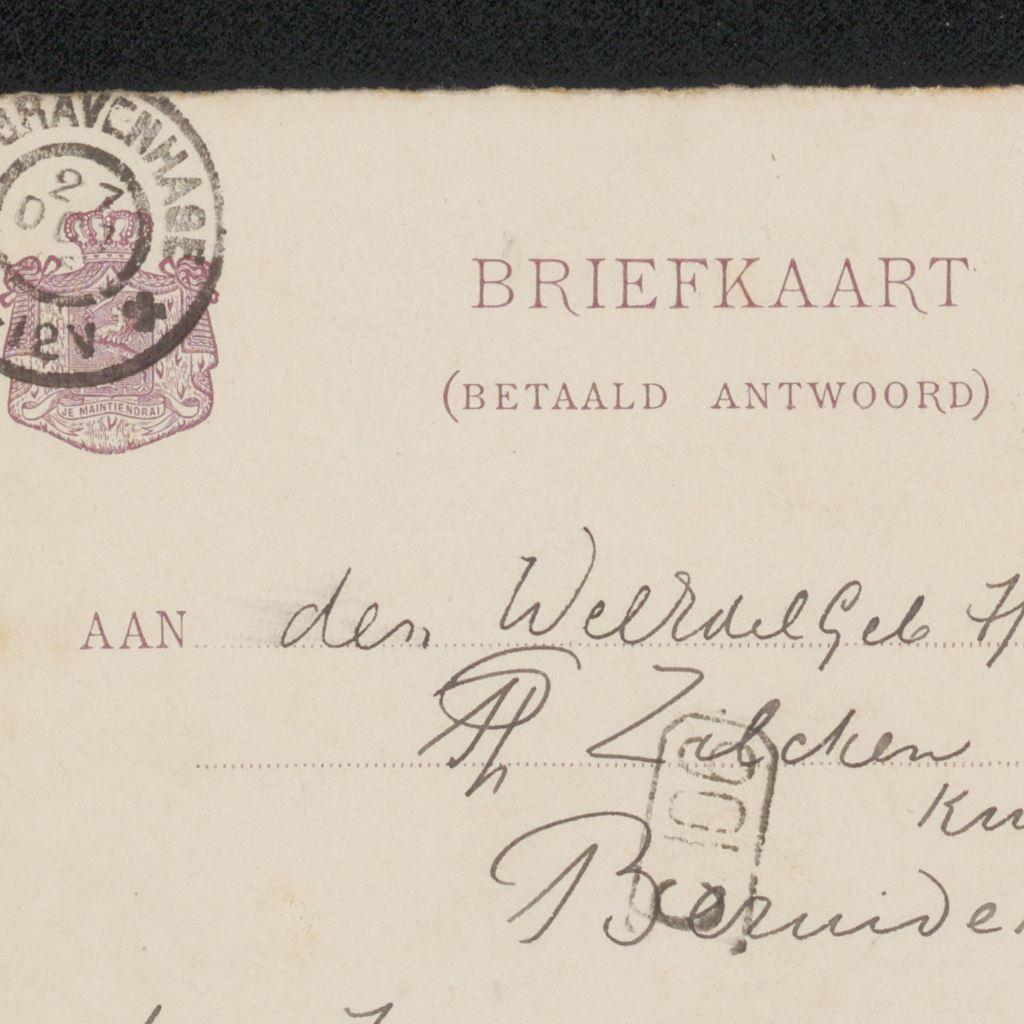 GRAVENHAGE
27
12N
JE MAINTIENDRAI
BRIEFKAART
(BETAALD ANTWOORD)
AAN den WelEdelGeb H
Ph Zilcken
106